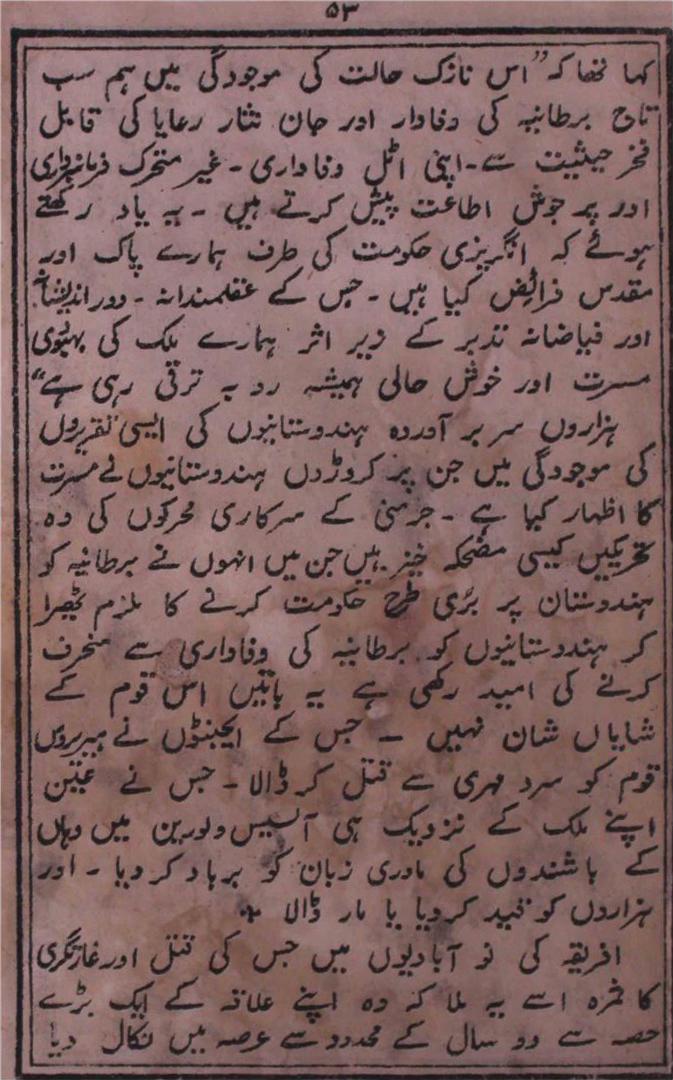 ۵۳
کہا تھا کہ ”اس نازک حالت کی موجودگی میں ہم سب
تاج برطانیہ کی وفادار اور جان نثار رعایا کی قابل
فخر حیثیت سے ۔ اپنی اٹل وفاداری ۔ غیر متحرک فرمانبرداری
اور پر جوش اطاعت پیش کرتے ہیں ۔ یہ یاد رکھتے
ہوئے کہ انگریزی حکومت کی طرف ہمارے پاک اور
مقدس فرائض کیا ہیں ۔ جس کے عقلمندانہ ۔ دور اندیشانہ
اور فیاضانہ تدبر کے زیر اثر ہمارے ملک کی بہبودی
مسرت اور خوش حالی ہمیشہ رو بہ ترقی رہی ہے“
ہزاروں سر بر آوردہ ہندوستانیوں کی ایسی تقریروں
کی موجودگی میں جن پر کروڑوں ہندوستانیوں نے مسرت
کا اظہار کیا ہے ۔ جرمنی کے سرکاری محرکوں کی وہ
تحریکیں کیسی مضحکہ خیز ہیں جن میں انہوں نے برطانیہ کو
ہندوستان پر بری طرح حکومت کرنے کا ملزم ٹھیرا
کر ہندوستانیوں کو برطانیہ کی وفاداری سے منحرف
کرنے کی امید رکھی ہے یہ باتیں اس قوم کے
شایاں شان نہیں ۔ جس کے ایجنٹوں نے ہیریروس
قوم کو سرد مہری سے قتل کر ڈالا ۔ جس نے عین
اپنے ملک کے نزدیک ہی آلسیس ولورین میں وہاں
کے باشندوں کی مادری زبان کو برباد کر دیا ۔ اور
ہزاروں کو قید کردیا یا مار ڈالا ٭
افریقہ کی نو آبادیوں میں جس کی قتل اور غارتگری
کا ثمرہ اسے یہ ملا کہ وہ اپنے علاقہ کے ایک بڑے
حصہ سے دو سال کے محدود سے عرصہ میں نکال دیا